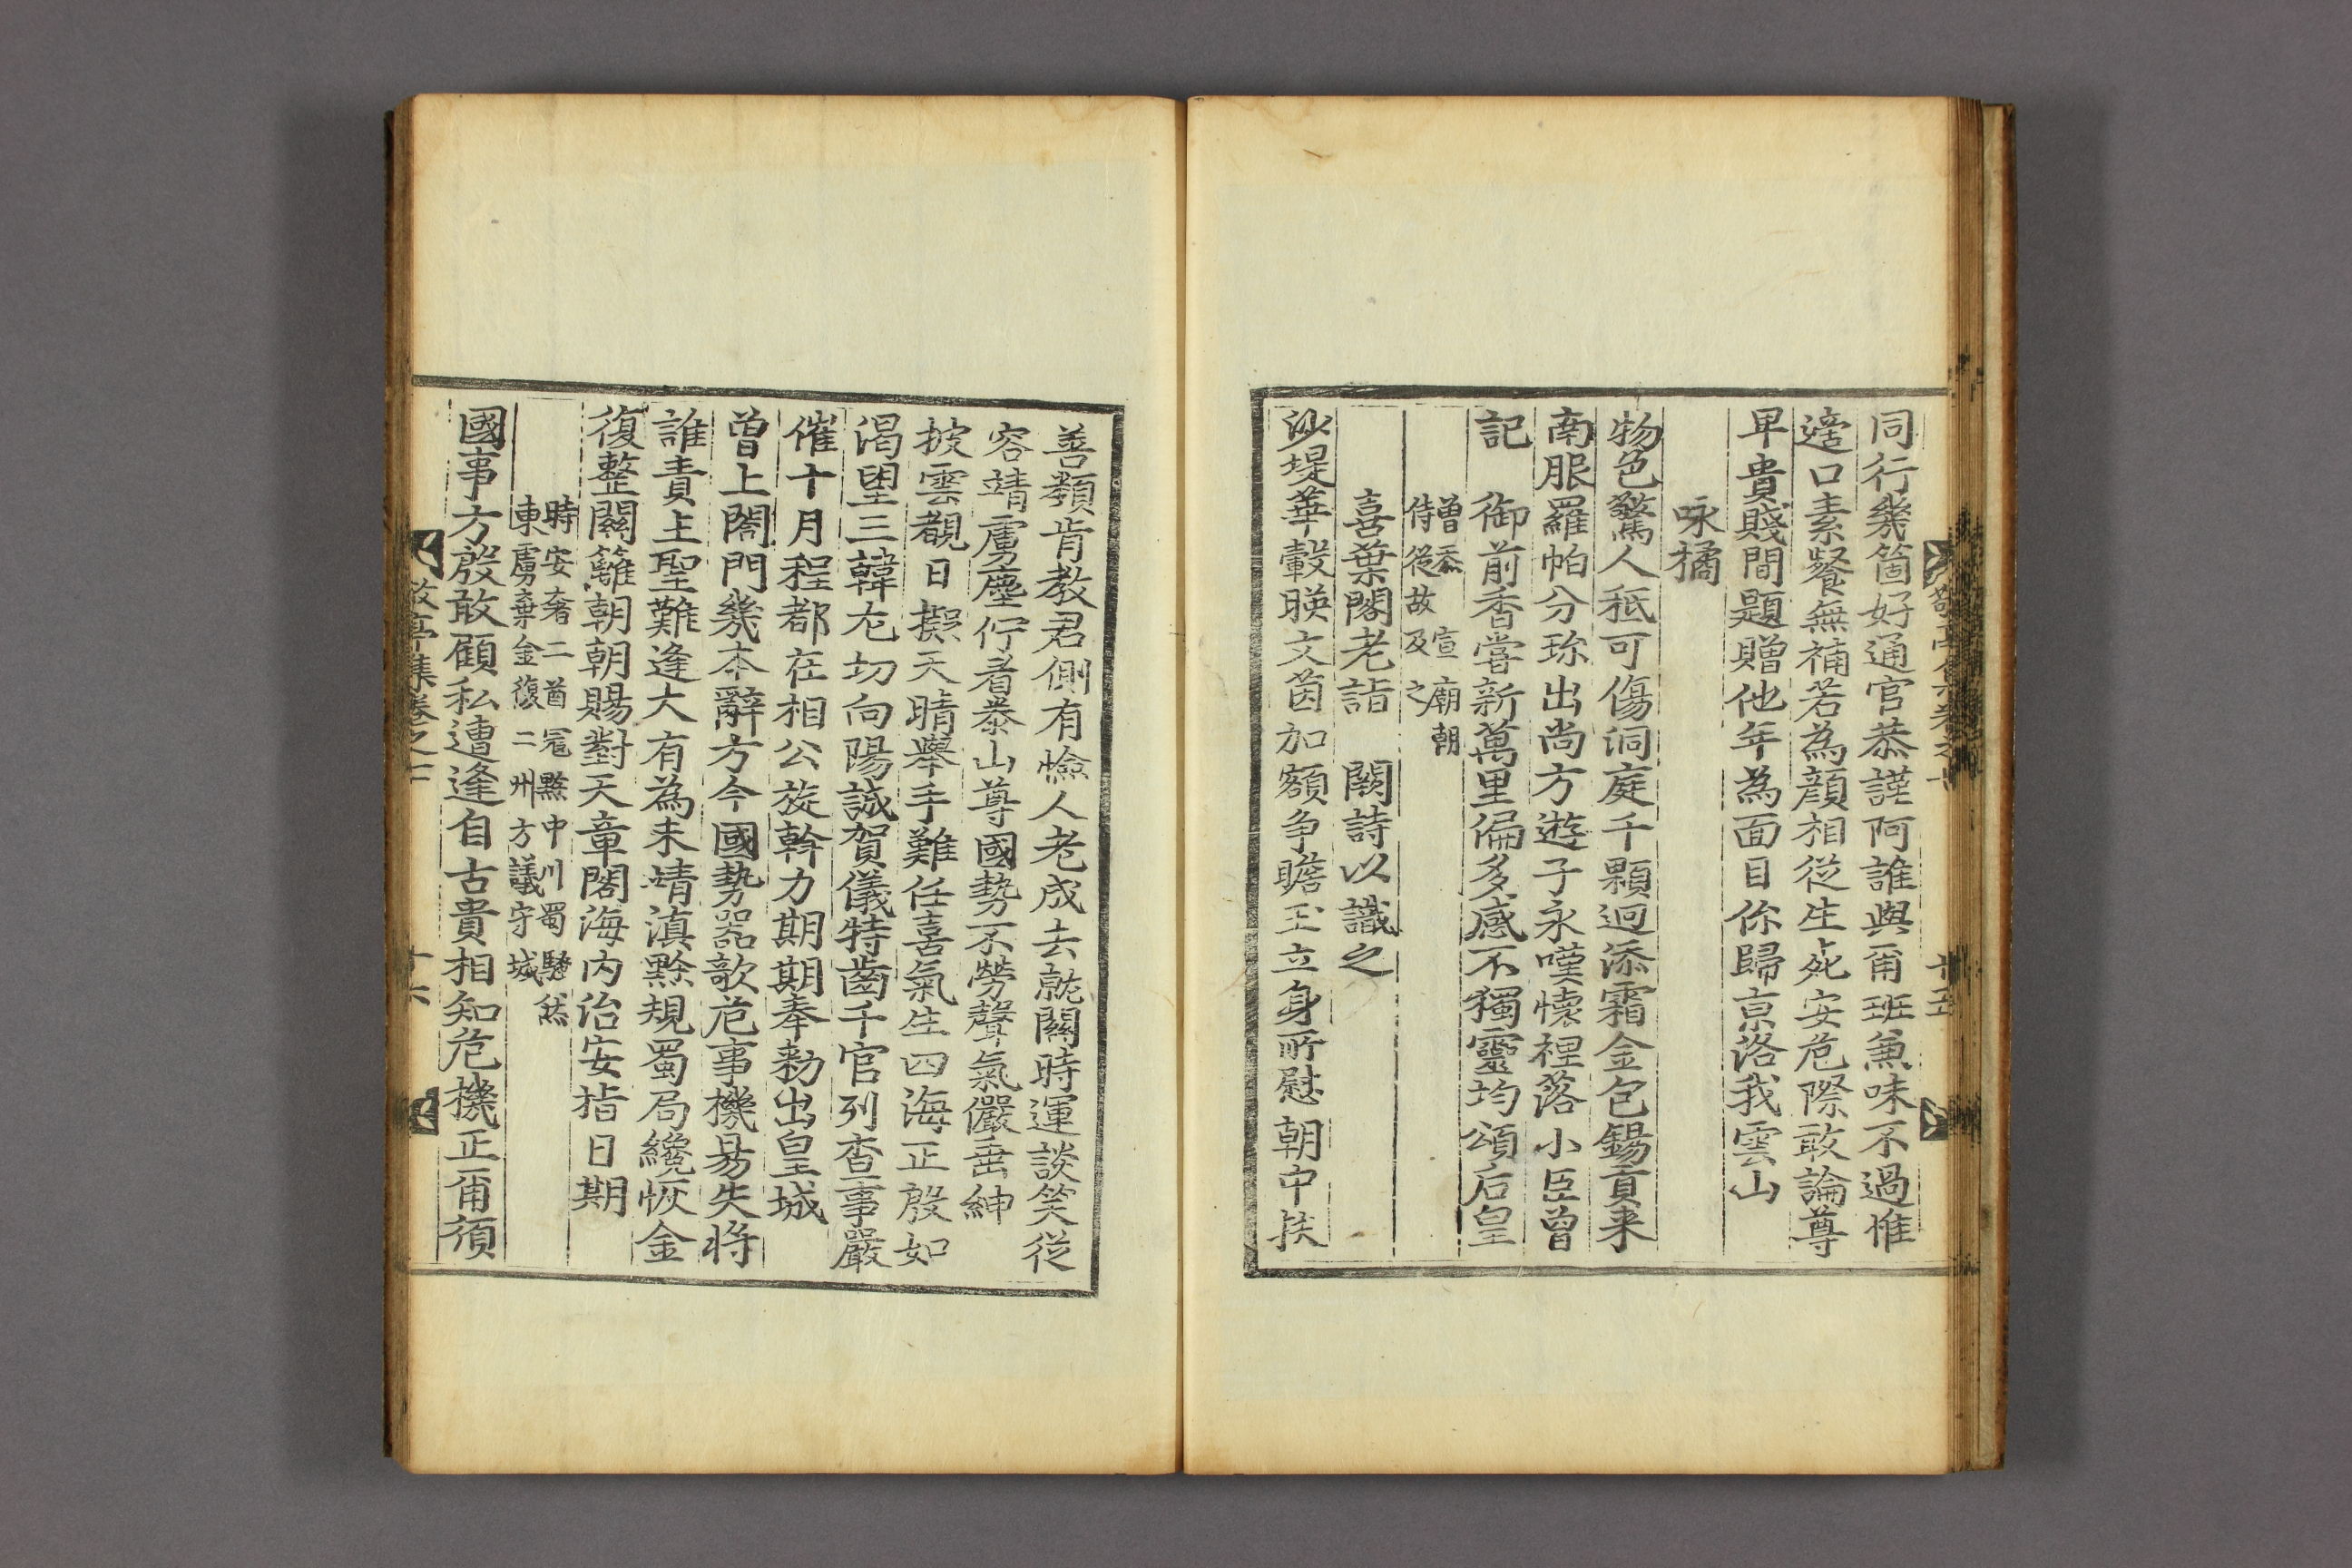 同行幾箇好通官恭謹阿誰與甭班魚味不過惟
邊口素餐無補若為顔相從生死安危際敢論尊
卑貴賤間題贈他年為面目你歸京洛我雲山
咏橘
物色驚人秪可傷洞庭千顆迥添霜金包錫貢来
南服羅帕分珎出尚方遊子永嘆懷裡落小臣曾
記　御前香嘗新萬里偏多感不獨靈均頌后皇
曾忝　宣廟朝
侍從故及之
喜葉閣老詣　闕詩以識之
沙堤華轂暎文茵加額争瞻玉立身所慰朝中扶
善類肯教君側有憸人老成去就關時運談笑従
容靖虜塵佇看泰山尊國勢不勞聲氣儼垂紳
披雲覩日擬天晴舉手難任喜氣生四海正殷如
渴望三韓尢切向陽誠賀儀特齒千官列查事嚴
催十月程都在相公旋斡力期期奉勑出皇城
曾上閤門幾本辭方今國勢噐歌危事機易失将
誰責上聖難逢大有為未靖滇黔規蜀局纔恢金
復整關籬朝朝賜對天章閣海内治安指日期
時安奢二酋冦黔中川蜀騷然
東虜棄金復二州方議守城
國事方殷敢顧私遭逢自古貴相知危機正甭須
敬亭集卷之
十五
十六